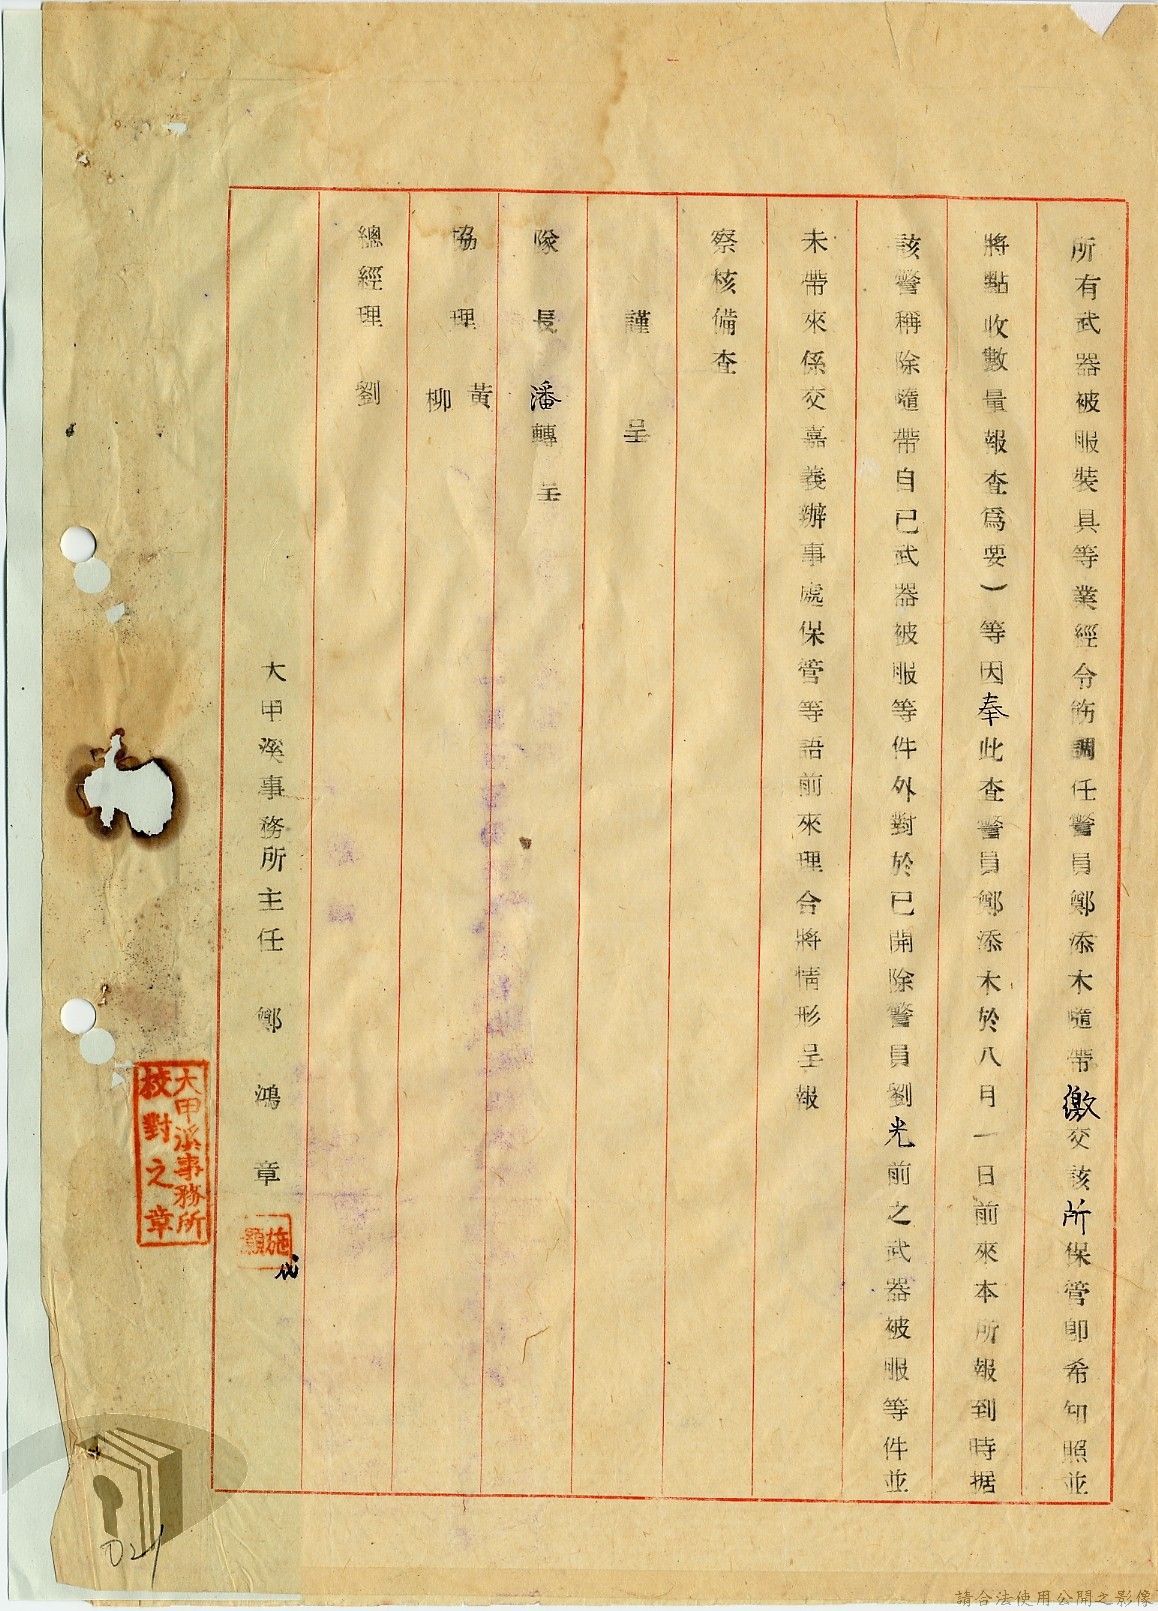 所有武器被服裝具等業經令飭調任警員鄭添木隨帶繳交該所保管即希知照並
將點收數量報查為要）等因奉此查警員鄭添木於八月一日前來本所報到時据
該警稱除隨帶自已武器被服等件外對於已開除警員劉光前之武器被服等件並
未帶來係交嘉義辦事處保管等語前來理合將情形呈報
察核備查
謹呈
隊長潘轉呈
協理黃
柳
總經理劉
大甲溪事務所主任鄭鴻章
施
大甲溪事務所
校對之章
021
請合法使用公開之影像